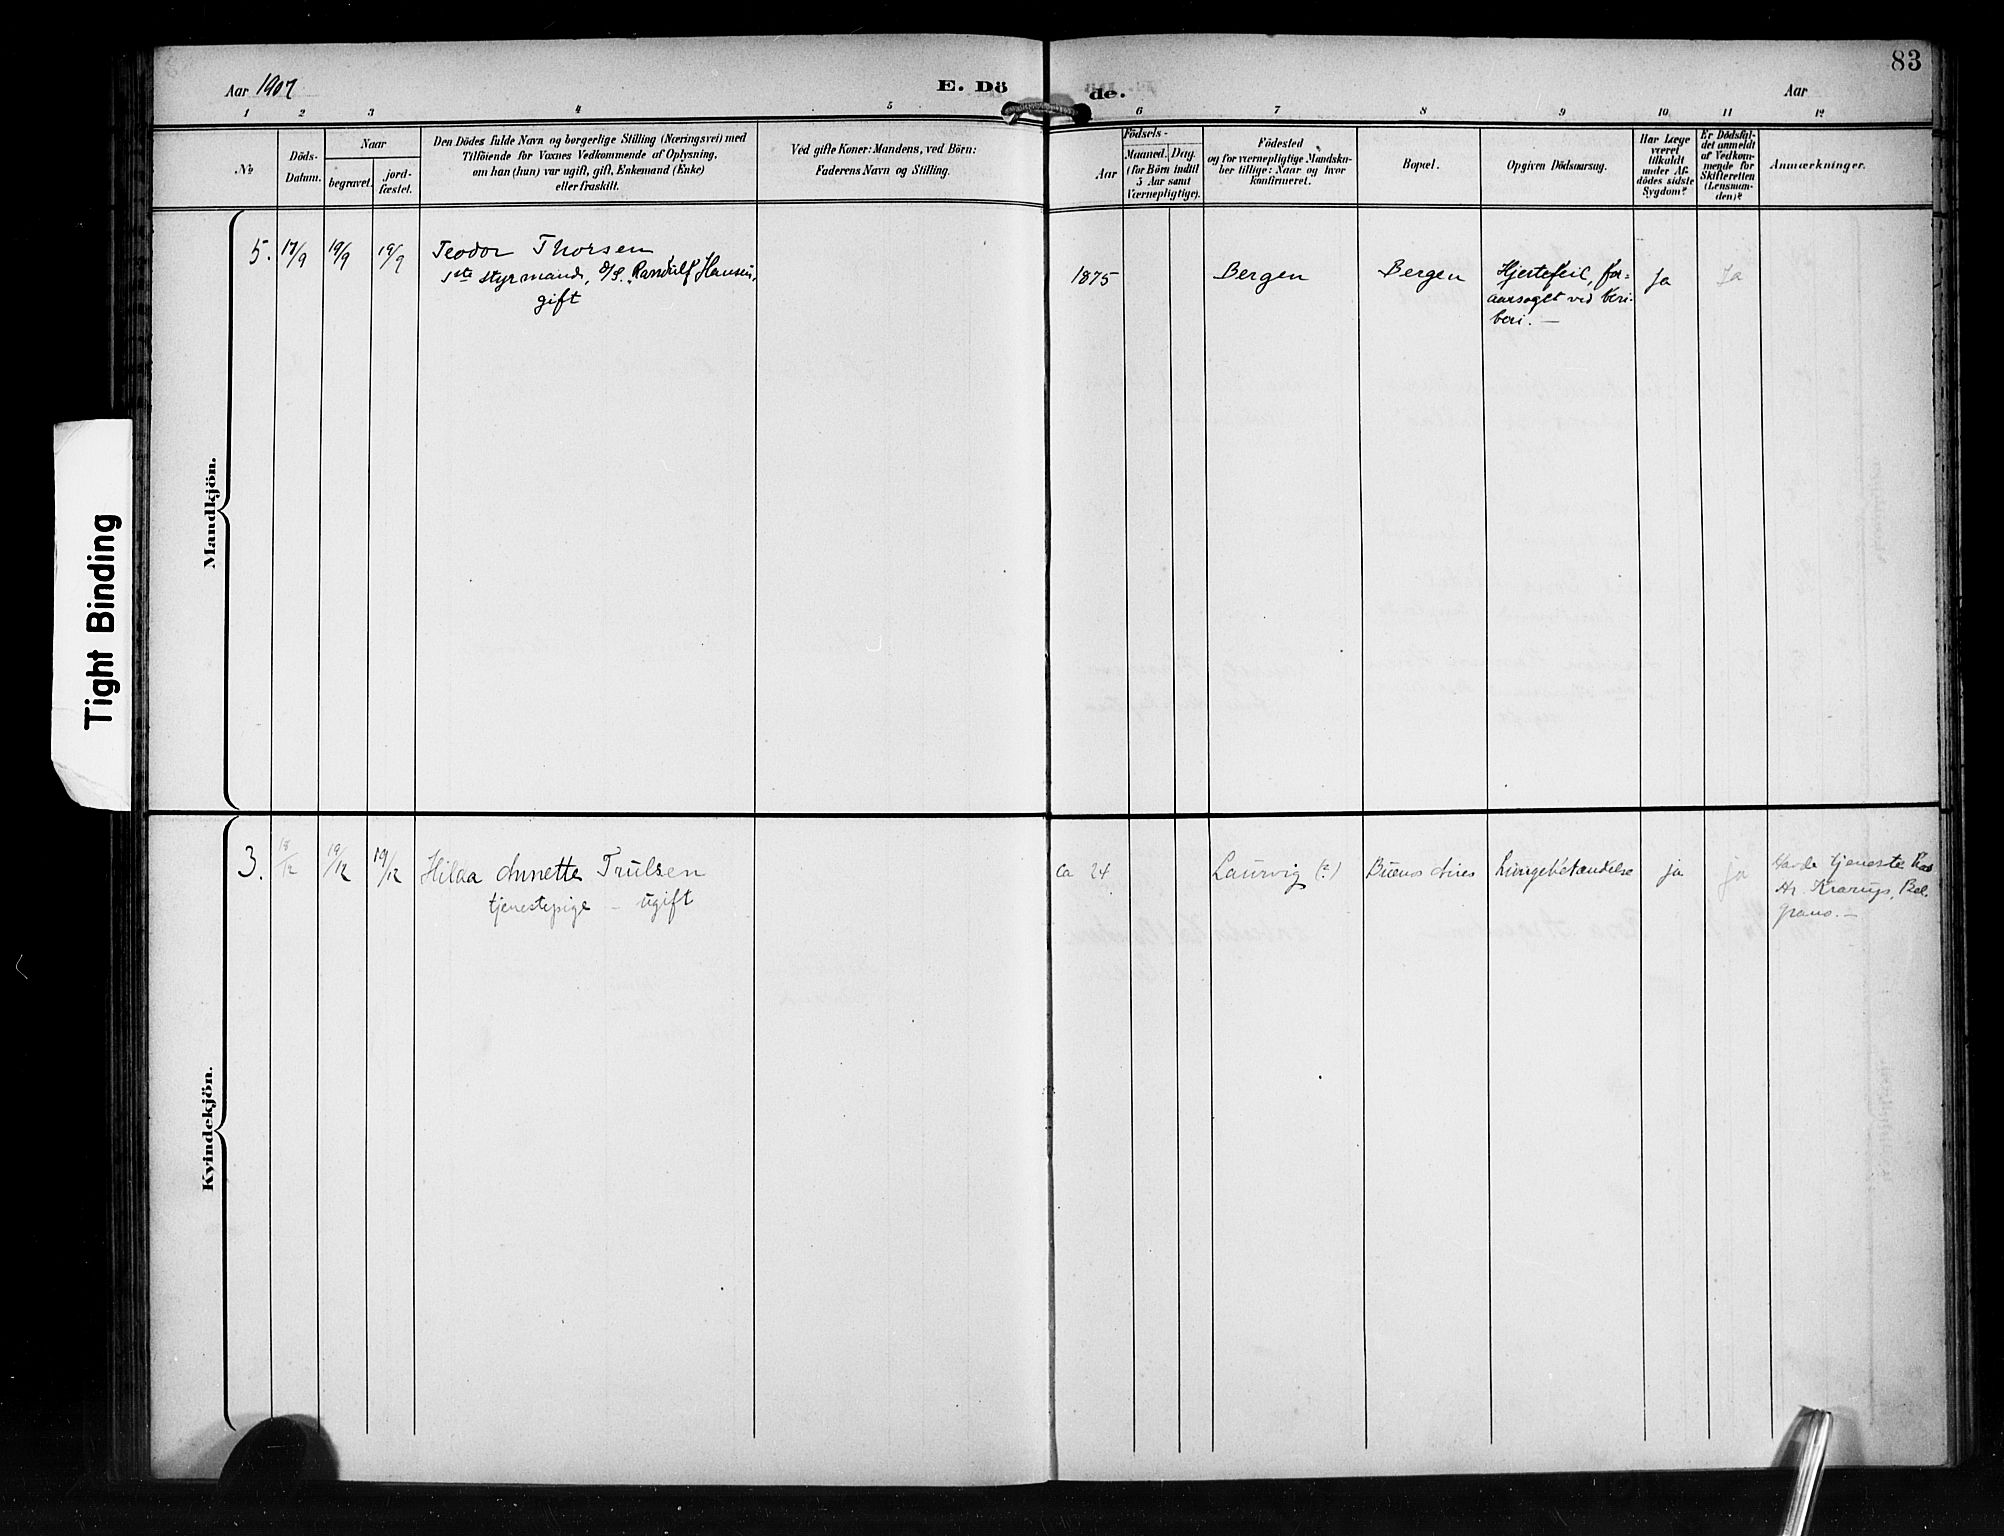 83
Aar 1907
E. Döde.
Aar
1 2 3 4 5 6 7 8 9 10 11 12
№
Döds-
Datum.
Naar
begravet.
jord-
fæstet.
Den Dödes fulde Navn og borgerlige Stilling (Næringsvei) med
Tilföiende for Voxnes Vedkommende af Oplysning,
om han (hun) var ugift, gift, Enkemand (Enke)
eller fraskilt.
Ved gifte Koner: Mandens, ved Börn:
Faderens Navn og Stilling.
Födsels-
Aar
Maaned. Dag.
(for Börn indtil
5 Aar samt
Værnepligtige).
Födested
og for værnepligtige Mandska-
ber tillige: Naar og hvor
konfirmeret.
Bopæl.
Opgiven Dödsaarsag.
Har Læge
været
tilkaldt
under Af-
dödes sidste
Sygdom?
Er Dödsfal-
det anmeldt
af Vedkom-
mende for
Skifteretten
(Lensman-
den)?
Anmærkninger.
Mandkjön.
5. 17/9 19/9 19/9
Teodor Thorsen
1ste styrmand, D/S. Randulf Hansen,
gift
1875
Bergen
Bergen
Hjertefeil, for=
aarsaget ved beri-
beri. —
Ja
Ja
Tight Binding
Kvindekjön.
3. 18/12 19/12 19/12
Hilda Annette Trulsen
tjenestepige — ugift
ca 24
Laurvig (?)
Buenos Aires
Lungebetændelse
ja
ja
Havde tjeneste hos
Hr. Krarup, Bel-
grano. —